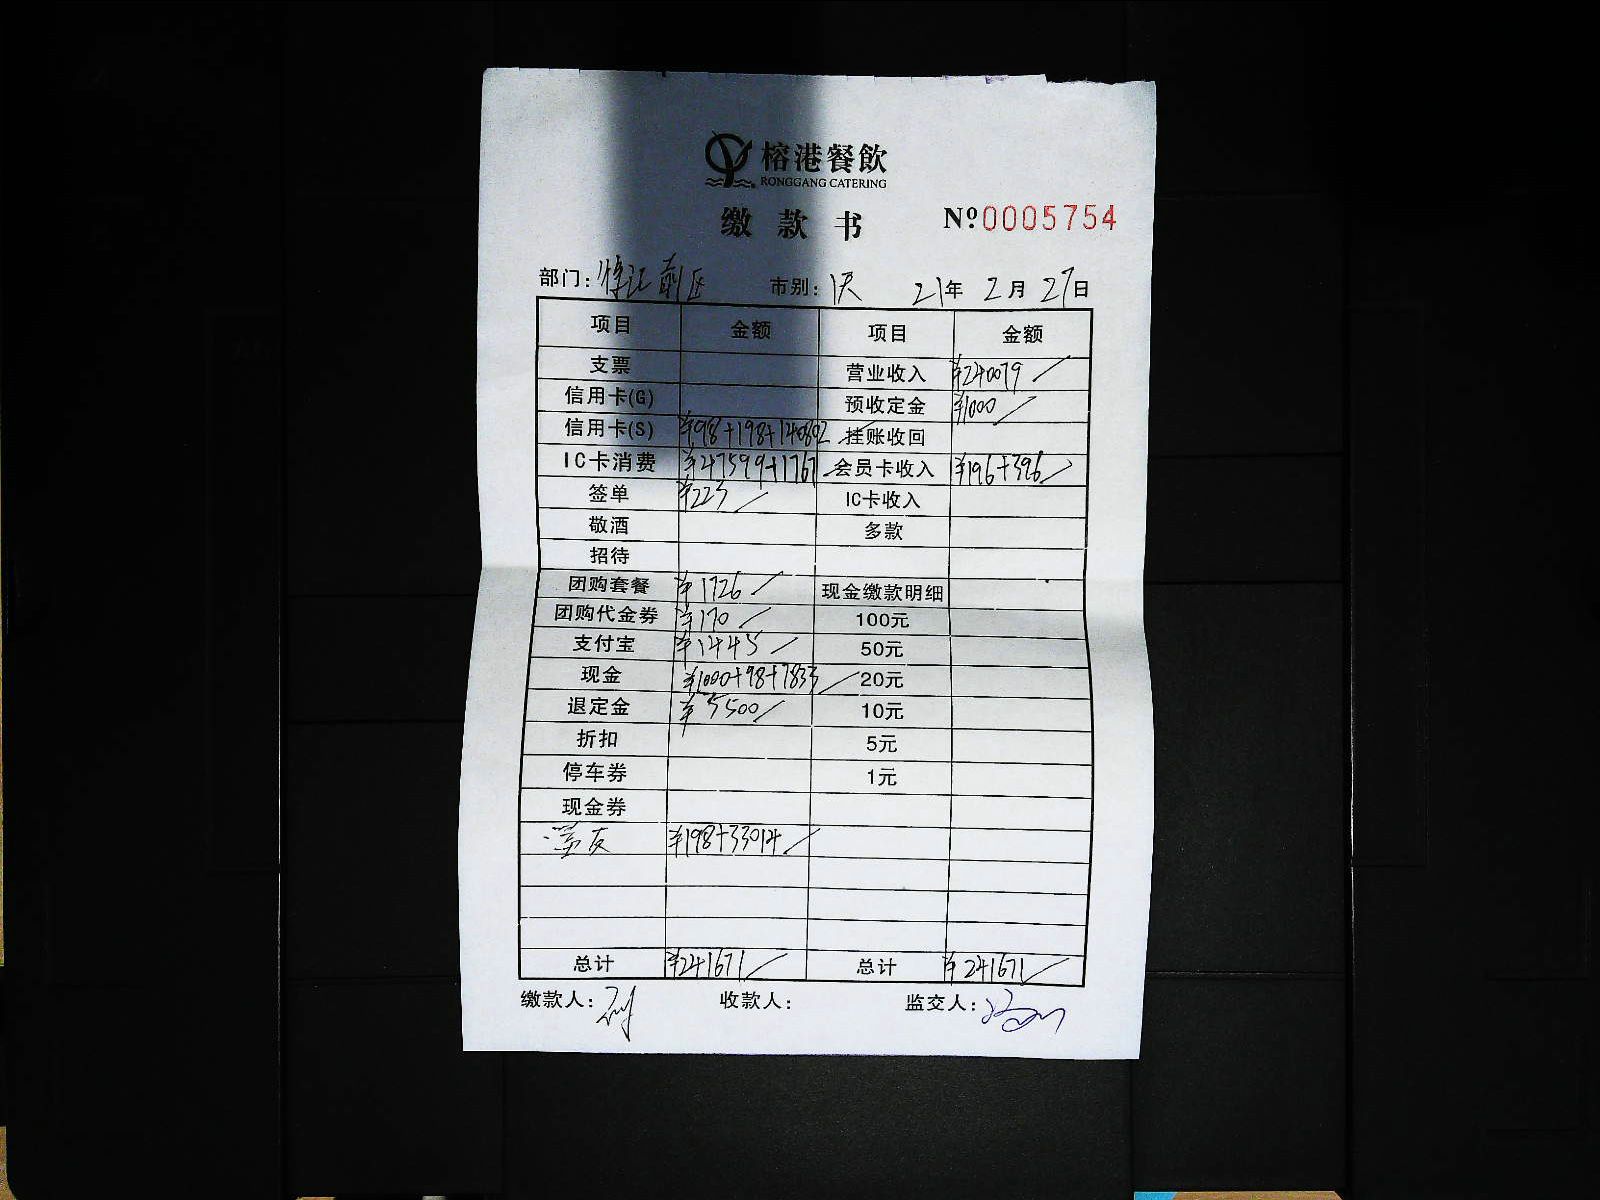 榕港餐飲
RONGGANG CATERING
缴款书 №0005754
部门: 市别: 21年 2月 27日
项目 金额 项目 金额
支票 营业收入 ¥240079
信用卡(G) 预收定金 ¥1000
信用卡(S) ¥98+198+140802 挂账收回
IC卡消费 ¥47599+1767 会员卡收入 ¥196+396
签单 ¥223 IC卡收入
敬酒 多款
招待
团购套餐 ¥1726 现金缴款明细
团购代金券 ¥170 100元
支付宝 ¥1445 50元
现金 ¥1000+98+7833 20元
退定金 ¥5500 10元
折扣 5元
停车券 1元
现金券
¥198+33014
总计 ¥241671 总计 ¥241671
缴款人: 收款人: 监交人: